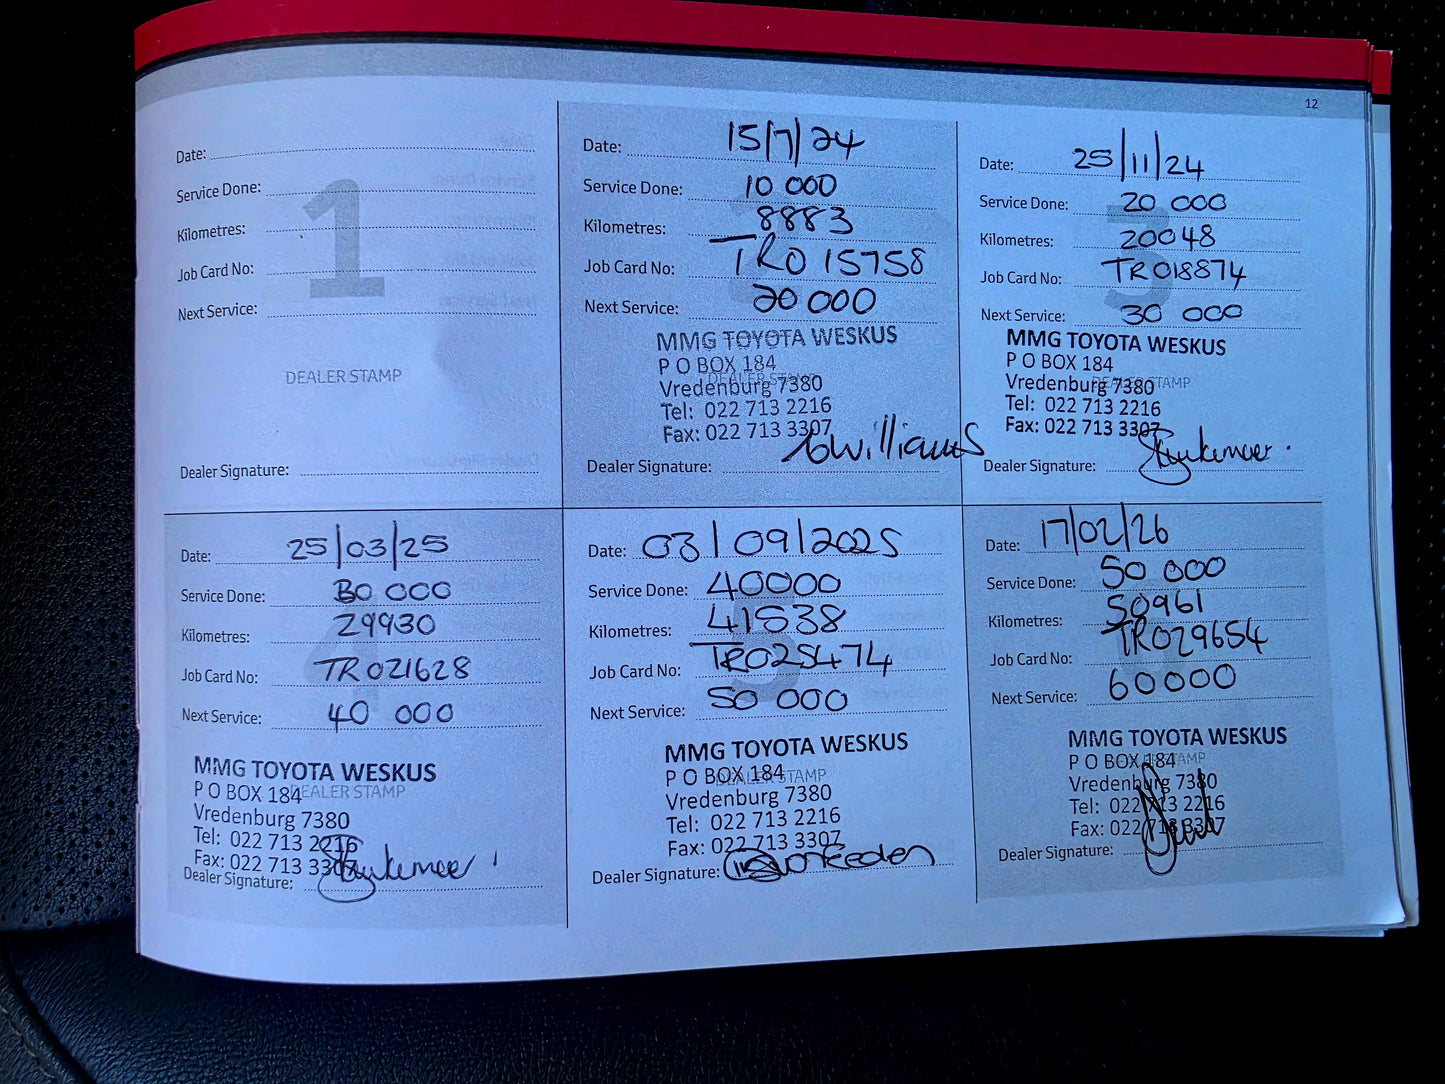 12
Date:
Service Done:
Kilometres:
Job Card No:
Next Service:
1
DEALER STAMP
Dealer Signature:
Date: 15/7/24
Service Done: 10 000
Kilometres: 8883
Job Card No: TR015758
Next Service: 20 000
MMG TOYOTA WESKUS
P O BOX 184
DEALER STAMP
Vredenburg 7380
Tel: 022 713 2216
Fax: 022 713 3307
Dealer Signature: Williams
Date: 25/11/24
Service Done: 20 000
3
Kilometres: 20048
Job Card No: TR018874
Next Service: 30 000
MMG TOYOTA WESKUS
P O BOX 184
DEALER STAMP
Vredenburg 7380
Tel: 022 713 2216
Fax: 022 713 3307
Dealer Signature:
Date: 25/03/25
Service Done: 30 000
Kilometres: 29930
Job Card No: TR021628
Next Service: 40 000
MMG TOYOTA WESKUS
P O BOX 184
DEALER STAMP
Vredenburg 7380
Tel: 022 713 2216
Fax: 022 713 3307
Dealer Signature:
Date: 03/09/2025
Service Done: 40000
Kilometres: 41538
5
Job Card No: TR025474
Next Service: 50 000
MMG TOYOTA WESKUS
P O BOX 184
DEALER STAMP
Vredenburg 7380
Tel: 022 713 2216
Fax: 022 713 3307
Dealer Signature:
Date: 17/02/26
Service Done: 50 000
Kilometres: 50961
Job Card No: TR029654
Next Service: 60000
MMG TOYOTA WESKUS
P O BOX 184
STAMP
Vredenburg 7380
Tel: 022 713 2216
Fax: 022 713 3307
Dealer Signature: